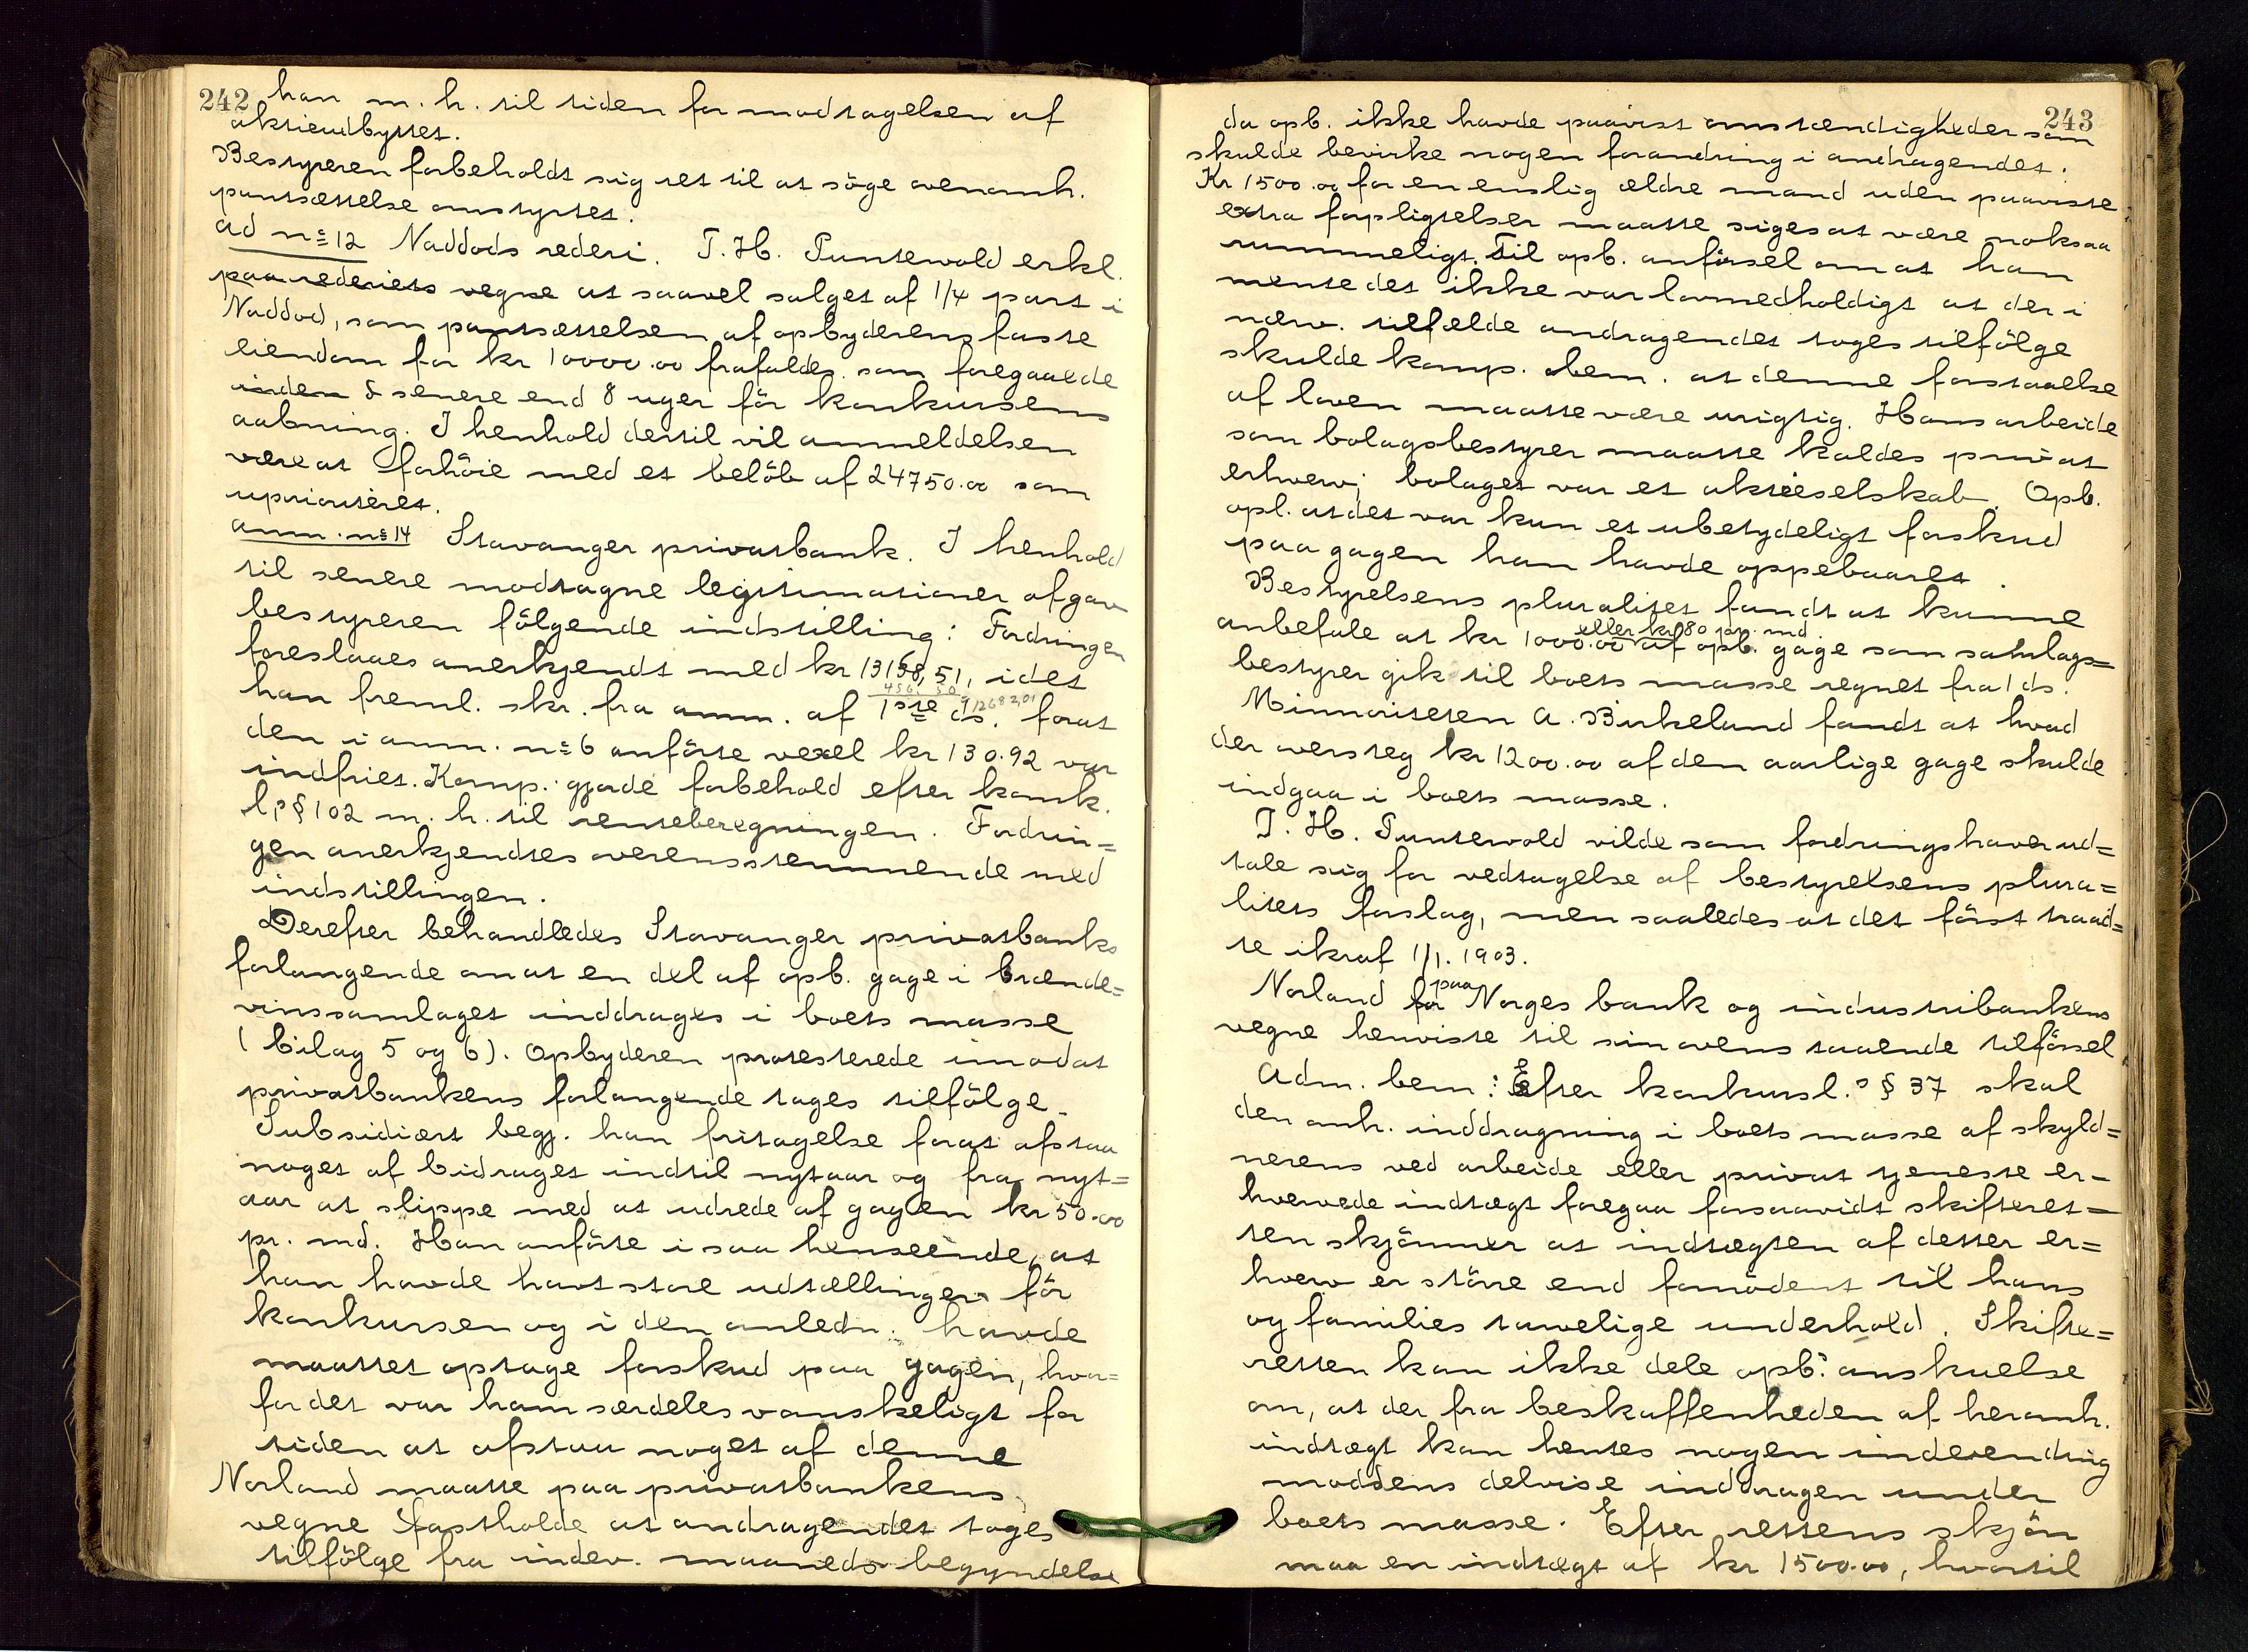 242 han m. h. til tiden for modtagelsen af
aktieudbyttet.
Bestyreren forbeholdt sig ret til at söge ovenanh.
pantsættelse omstyrtet.
ad no 12 Naddods rederi. T. H. Puntevold erkl.
paa rederiets vegne at saavel salget af 1/4 part i
Naddod, som pantsættelsen af opbyderens faste
eiendom for kr 10000.00 frafaldes som foregaaede
inden & senere end 8 uger för konkursens
aabning. I henhold dertil vil anmeldelsen
være at forhöie med et belöb af 24750.00 som
uprioriteret.
anm. no 14 Stavanger privatbank. I henhold
til senere modtagne legitimationer afgav
bestyreren fölgende indstilling: Fordringen
foreslaaes anerkjendt med kr 13138,51, idet
456.50 12682,01
han freml. skr. fra anm. af 1ste ds. forat
den i anm. no 6 anförte vexel kr 130.92 var
indfriet. Komp. gjorde forbehold efter konk.
l.s § 102 m. h. til renteberegningen. Fordrin=
gen anerkjendtes overensstemmende med
indstillingen.
Derefter behandledes Stavanger privatbanks
forlangende om at en del af opb. gage i brænde=
vinssamlaget inddrages i boets masse
(bilag 5 og 6). Opbyderen protesterede imod at
privatbankens forlangende tages tilfölge.
Subsidiært begj. han fritagelse forat afstaa
noget af bidraget indtil nytaar og fra nyt=
aar at slippe med at udrede af gagen kr 50.00
pr. md. Han anförte i saa henseende, at
han havde havt store udtællinger för
konkursen og i den anledn. havde
maattet optage forskud paa gagen, hvor=
for det var ham særdeles vanskeligt for
tiden at afstaa noget af denne
Norland maatte paa privatbankens
vegne fastholde at andragendet toges
tilfölge fra indev. maaneds begyndelse
243
da opb. ikke havde paavist omstændigheder som
skulde bevirke nogen forandring i andragendet.
Kr 1500.00 for en enslig ældre mand uden paaviste
extra forpligtelser maatte siges at være noksaa
rummeligt. Til opb. anförsel om at han
mente det ikke var lovmedholdigt at der i
nærv. tilfælde andragendet toges tilfölge
skulde komp. bem. at denne forstaaelse
af loven maatte være urigtig. Hans arbeide
som bolagsbestyrer maatte kaldes privat
erhverv; bolaget var et aktieselskab. Opb.
opl. at det var kun et ubetydeligt forskud
paa gagen han havde oppebaaret.
Bestyrelsens pluralitet fandt at kunne
eller kr 80 pr. md
anbefale at kr 1000.00 af opb. gage som samlags=
bestyrer gik til boets masse regnet fra 1 ds.
Minoriteten A. Birkeland fandt at hvad
der oversteg kr 1200.00 af den aarlige gage skulde
indgaa i boets masse.
T. H. Puntevold vilde som fordringshaver ud=
tale sig for vedtagelse af bestyrelsens plura=
litets forslag, men saaledes at det först traad=
te ikraf 1/1. 1903.
paa
Norland for Norges bank og industribankens
vegne henviste til sin ovenstaaende tilförsel
Adm. bem: Efter konkursl.s § 37 skal
den anh. inddragning i boets masse af skyld=
nerens ved arbeide eller privat tjeneste er=
hvervede indtægt foregaa forsaavidt skifteret=
ten skjönner at indtægten af dette er=
hverv er större end fornödent til hans
og families tarvelige underhold. Skifte=
retten kan ikke dele opb.s anskuelse
om, at der fra beskaffenheden af heromh.
indtægt kan hentes nogen indvending
mod dens delvise inddragen under
boets masse. Efter rettens skjön
maa en indtægt af kr 1500.00, hvortil